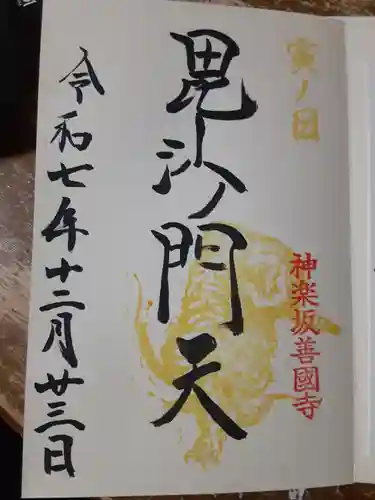 寅ノ日
神楽坂善國寺
毘沙門天
令和七年十二月廿三日